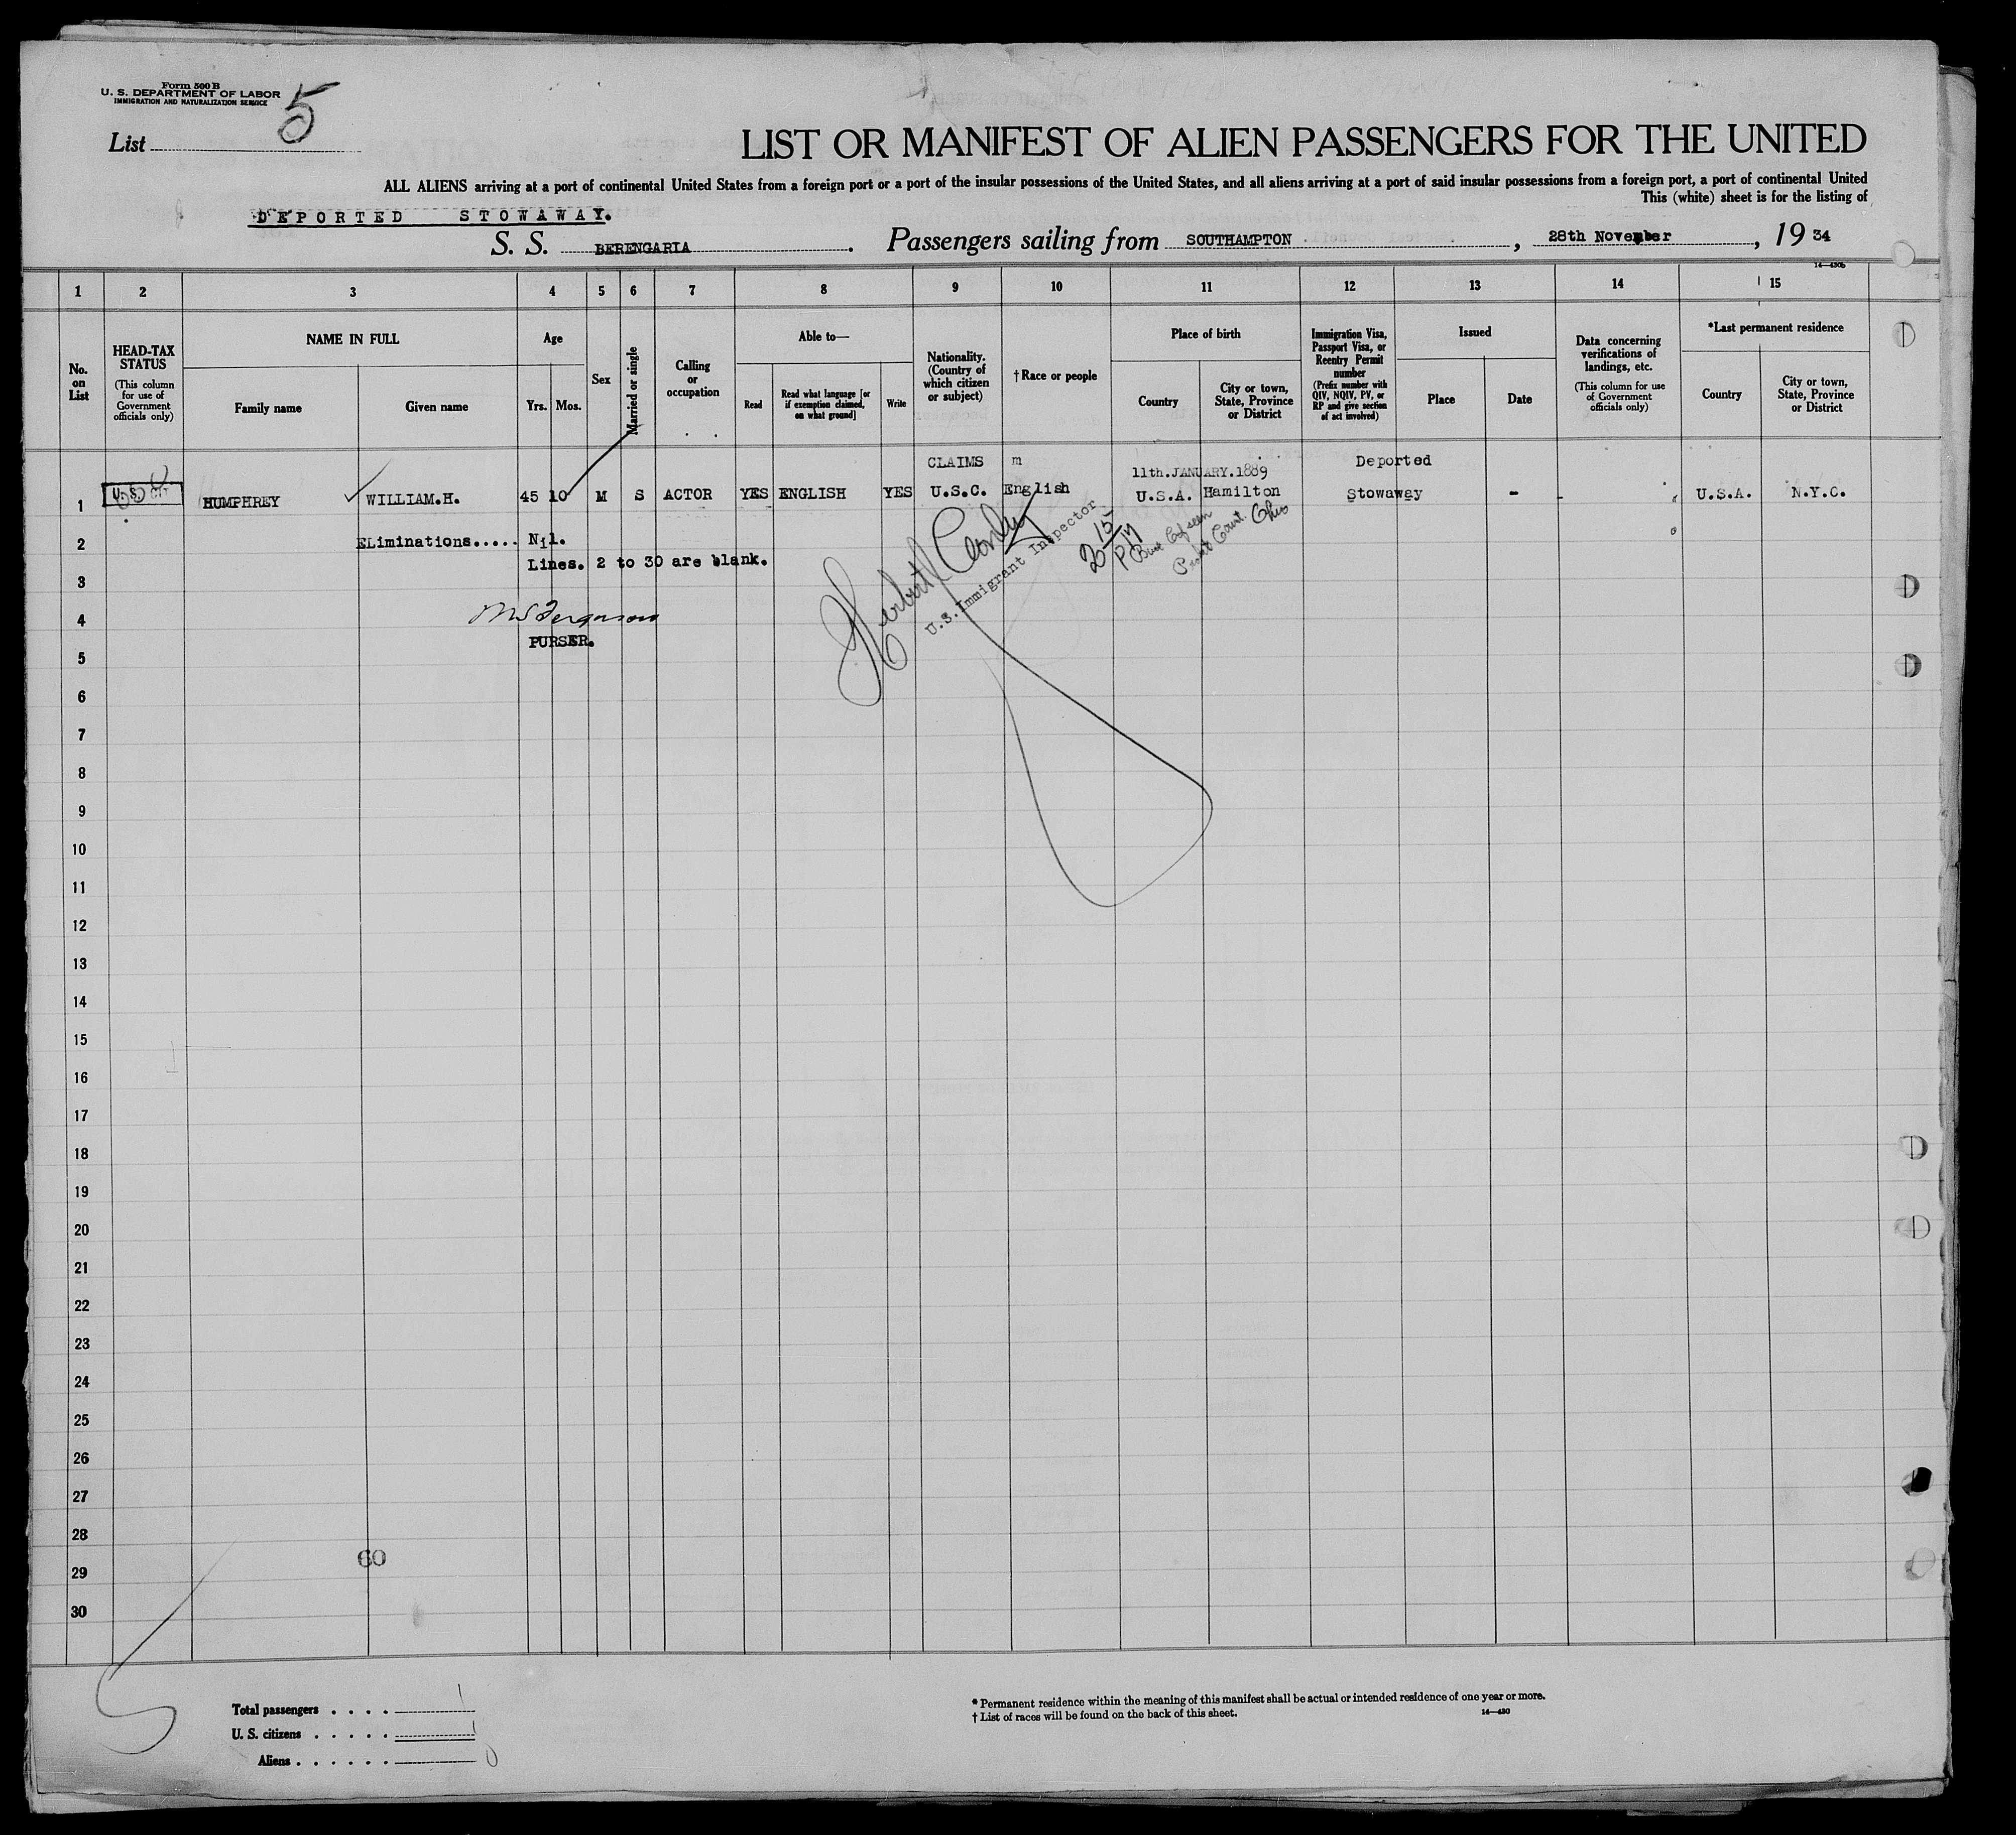 Form 500 B
U. S. DEPARTMENT OF LABOR
IMMIGRATION AND NATURALIZATION SERVICE
List 5
LIST OR MANIFEST OF ALIEN PASSENGERS FOR THE UNITED
ALL ALIENS arriving at a port of continental United States from a foreign port or a port of the insular possessions of the United States, and all aliens arriving at a port of said insular possessions from a foreign port, a port of continental United
This (white) sheet is for the listing of
DEPORTED STOWAWAY.
S. S. BERENGARIA. Passengers sailing from SOUTHAMPTON, 28th November, 19 34
14—430b
1 2 3 4 5 6 7 8 9 10 11 12 13 14 15
No. on List
HEAD-TAX STATUS
(This column for use of Government officials only)
NAME IN FULL
Family name
Given name
Age
Yrs. Mos.
Sex
Married or single
Calling or occupation
Able to—
Read
Read what language [or if exemption claimed, on what ground]
Write
Nationality. (Country of which citizen or subject)
†Race or people
Place of birth
Country
City or town, State, Province or District
Immigration Visa, Passport Visa, or Reentry Permit number
(Prefix number with QIV, NQIV, PV, or RP and give section of act involved)
Issued
Place
Date
Data concerning verifications of landings, etc.
(This column for use of Government officials only)
*Last permanent residence
Country
City or town, State, Province or District
CLAIMS m 11th.JANUARY.1889 Deported
1 U.S. CIT HUMPHREY WILLIAM.H. 45 10 M S ACTOR YES ENGLISH YES U.S.C. English U.S.A. Hamilton Stowaway - - U.S.A. N.Y.C.
Ohio
2 ELiminations..... Nil.
Lines. 2 to 30 are blank.
3
U.S. Immigrant Inspector
4
PURSER.
5
6
7
8
9
10
11
12
13
14
15
16
17
18
19
20
21
22
23
24
25
26
27
28
60
29
30
Total passengers . . . . 1
U. S. citizens . . . . . 1
Aliens . . . . . . 0
* Permanent residence within the meaning of this manifest shall be actual or intended residence of one year or more.
† List of races will be found on the back of this sheet.
14—430